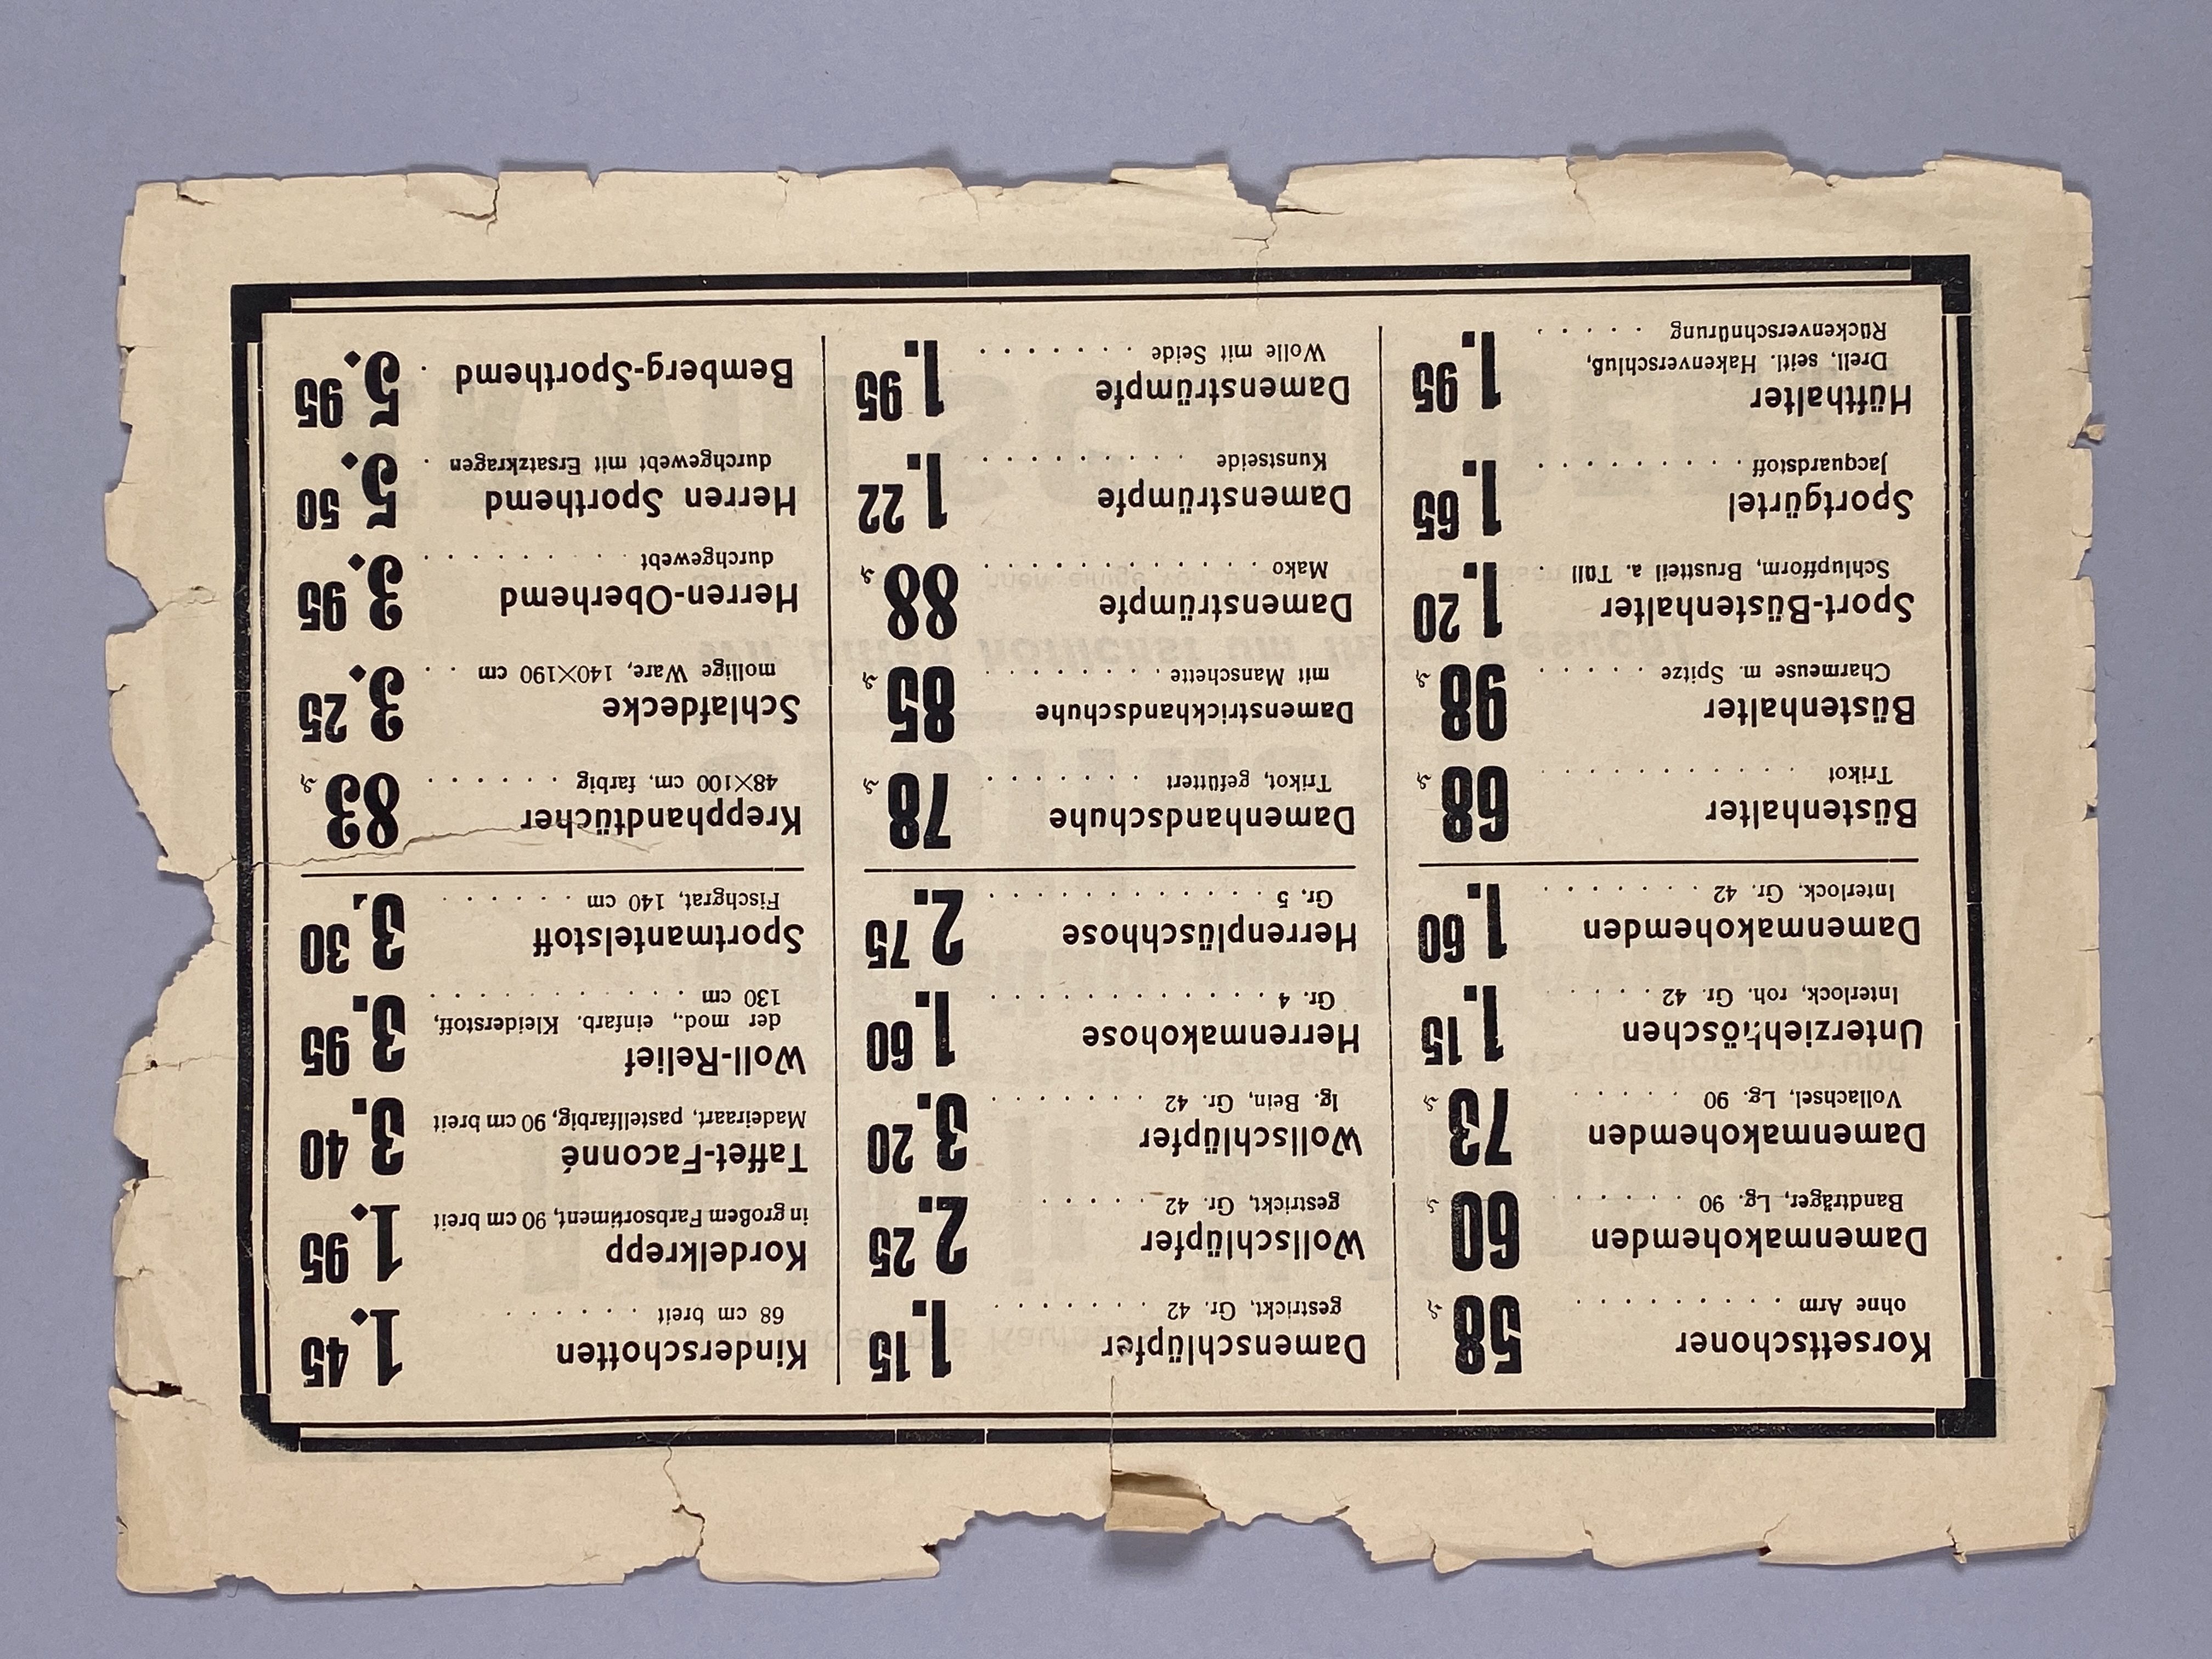 Korsettschoner
ohne Arm . . . . . . . . . 58 ₰
Damenmakohemden
Bandträger, Lg. 90 . . . . . . 60 ₰
Damenmakohemden
Vollachsel, Lg. 90 . . . . . 73 ₰
Unterziehhöschen
Interlock, roh. Gr. 42 . . . . . 1.15
Damenmakohemden
Interlock, Gr. 42 . . . . . . . 1.60
Büstenhalter
Trikot . . . . . . . . . . . . 68 ₰
Büstenhalter
Charmeuse m. Spitze . . . . . 98 ₰
Sport-Büstenhalter
Schlupfform, Brustteil a. Tüll . 1.20
Sportgürtel
Jacquardstoff . . . . . . . . . 1.65
Hüfthalter
Drell, seitl. Hakenverschluß,
Rückenverschnürung . . . . . 1.95
Damenschlüpfer
gestrickt, Gr. 42 . . . . . . . 1.15
Wollschlüpfer
gestrickt, Gr. 42 . . . . . 2.25
Wollschlüpfer
lg. Bein, Gr. 42 . . . . . . . 3.20
Herrenmakohose
Gr. 4 . . . . . . . . . . . . 1.60
Herrenplüschhose
Gr. 5 . . . . . . . . . . . . 2.75
Damenhandschuhe
Trikot, gefüttert . . . . . . . 78 ₰
Damenstrickhandschuhe
mit Manschette . . . . . . . 85 ₰
Damenstrümpfe
Mako . . . . . . . . . . . . 88 ₰
Damenstrümpfe
Kunstseide . . . . . . . . . 1.22
Damenstrümpfe
Wolle mit Seide . . . . . . . 1.95
Kinderschotten
68 cm breit . . . . . . 1.45
Kordelkrepp
in großem Farbsortiment, 90 cm breit 1.95
Taffet-Faconné
Madeiraart, pastellfarbig, 90 cm breit 3.40
Woll-Relief
der mod., einfarb. Kleiderstoff,
130 cm . . . . . . . . . . . 3.95
Sportmantelstoff
Fischgrat, 140 cm . . . . . . 3.30
Krepphandtücher
48×100 cm, farbig . . . . . . 83 ₰
Schlafdecke
mollige Ware, 140×190 cm . . 3.25
Herren-Oberhemd
durchgewebt . . . . . . . . . 3.95
Herren Sporthemd
durchgewebt mit Ersatzkragen . 5.50
Bemberg-Sporthemd . 5.95